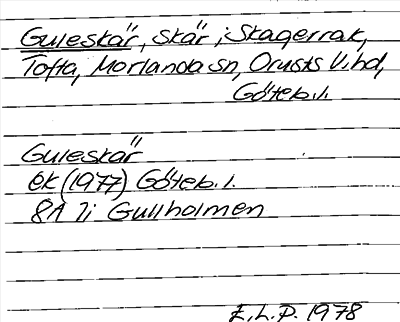 Guleskär, skär i Skagerrak,
Tofta, Morlanda sn, Orusts V. hd,
Göteb. l.
Guleskär
ek (1977) Göteb. l.
8A 7i Gullholmen
E.L.P. 1978